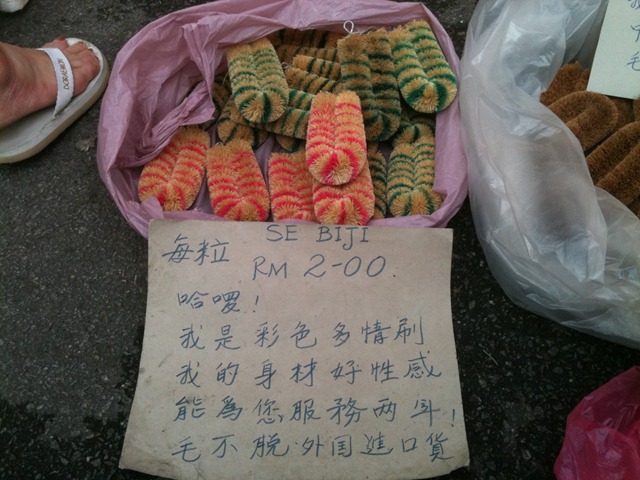 每粒 SE BIJI
RM 2-00.
哈啰!
我是彩色多情刷
我的身材好性感
能為您服務两年!
毛不脫·外国進口貨